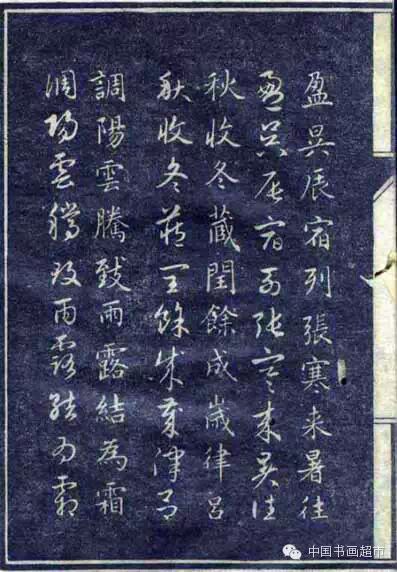 盈昃辰宿列張寒来暑往
盈昃辰宿列張寒来暑往
秋收冬藏閏餘成歲律呂
秋收冬藏閏餘成歲律呂
調陽雲騰致雨露結為霜
調陽雲騰致雨露結為霜
中国书画超市